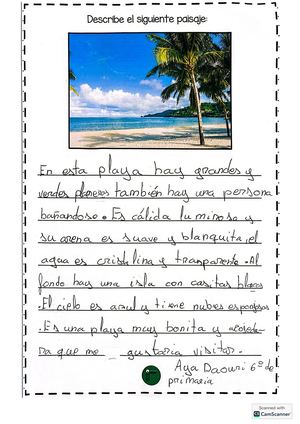 Describe el siguiente paisaje:
En esta playa hay grandes y
verdes también hay una persona
bañandose. Es cálida luminosa y
su arena es suave y blanquita, el
agua es cristalina y tranparente. Al
fondo hay una isla con casitas blancas
.El cielo es azul y tiene nubes
.Es una playa muy bonita y
ra que me gustaria visitar.
Aya Daouri 6º de
primaria
Scanned with
CamScanner